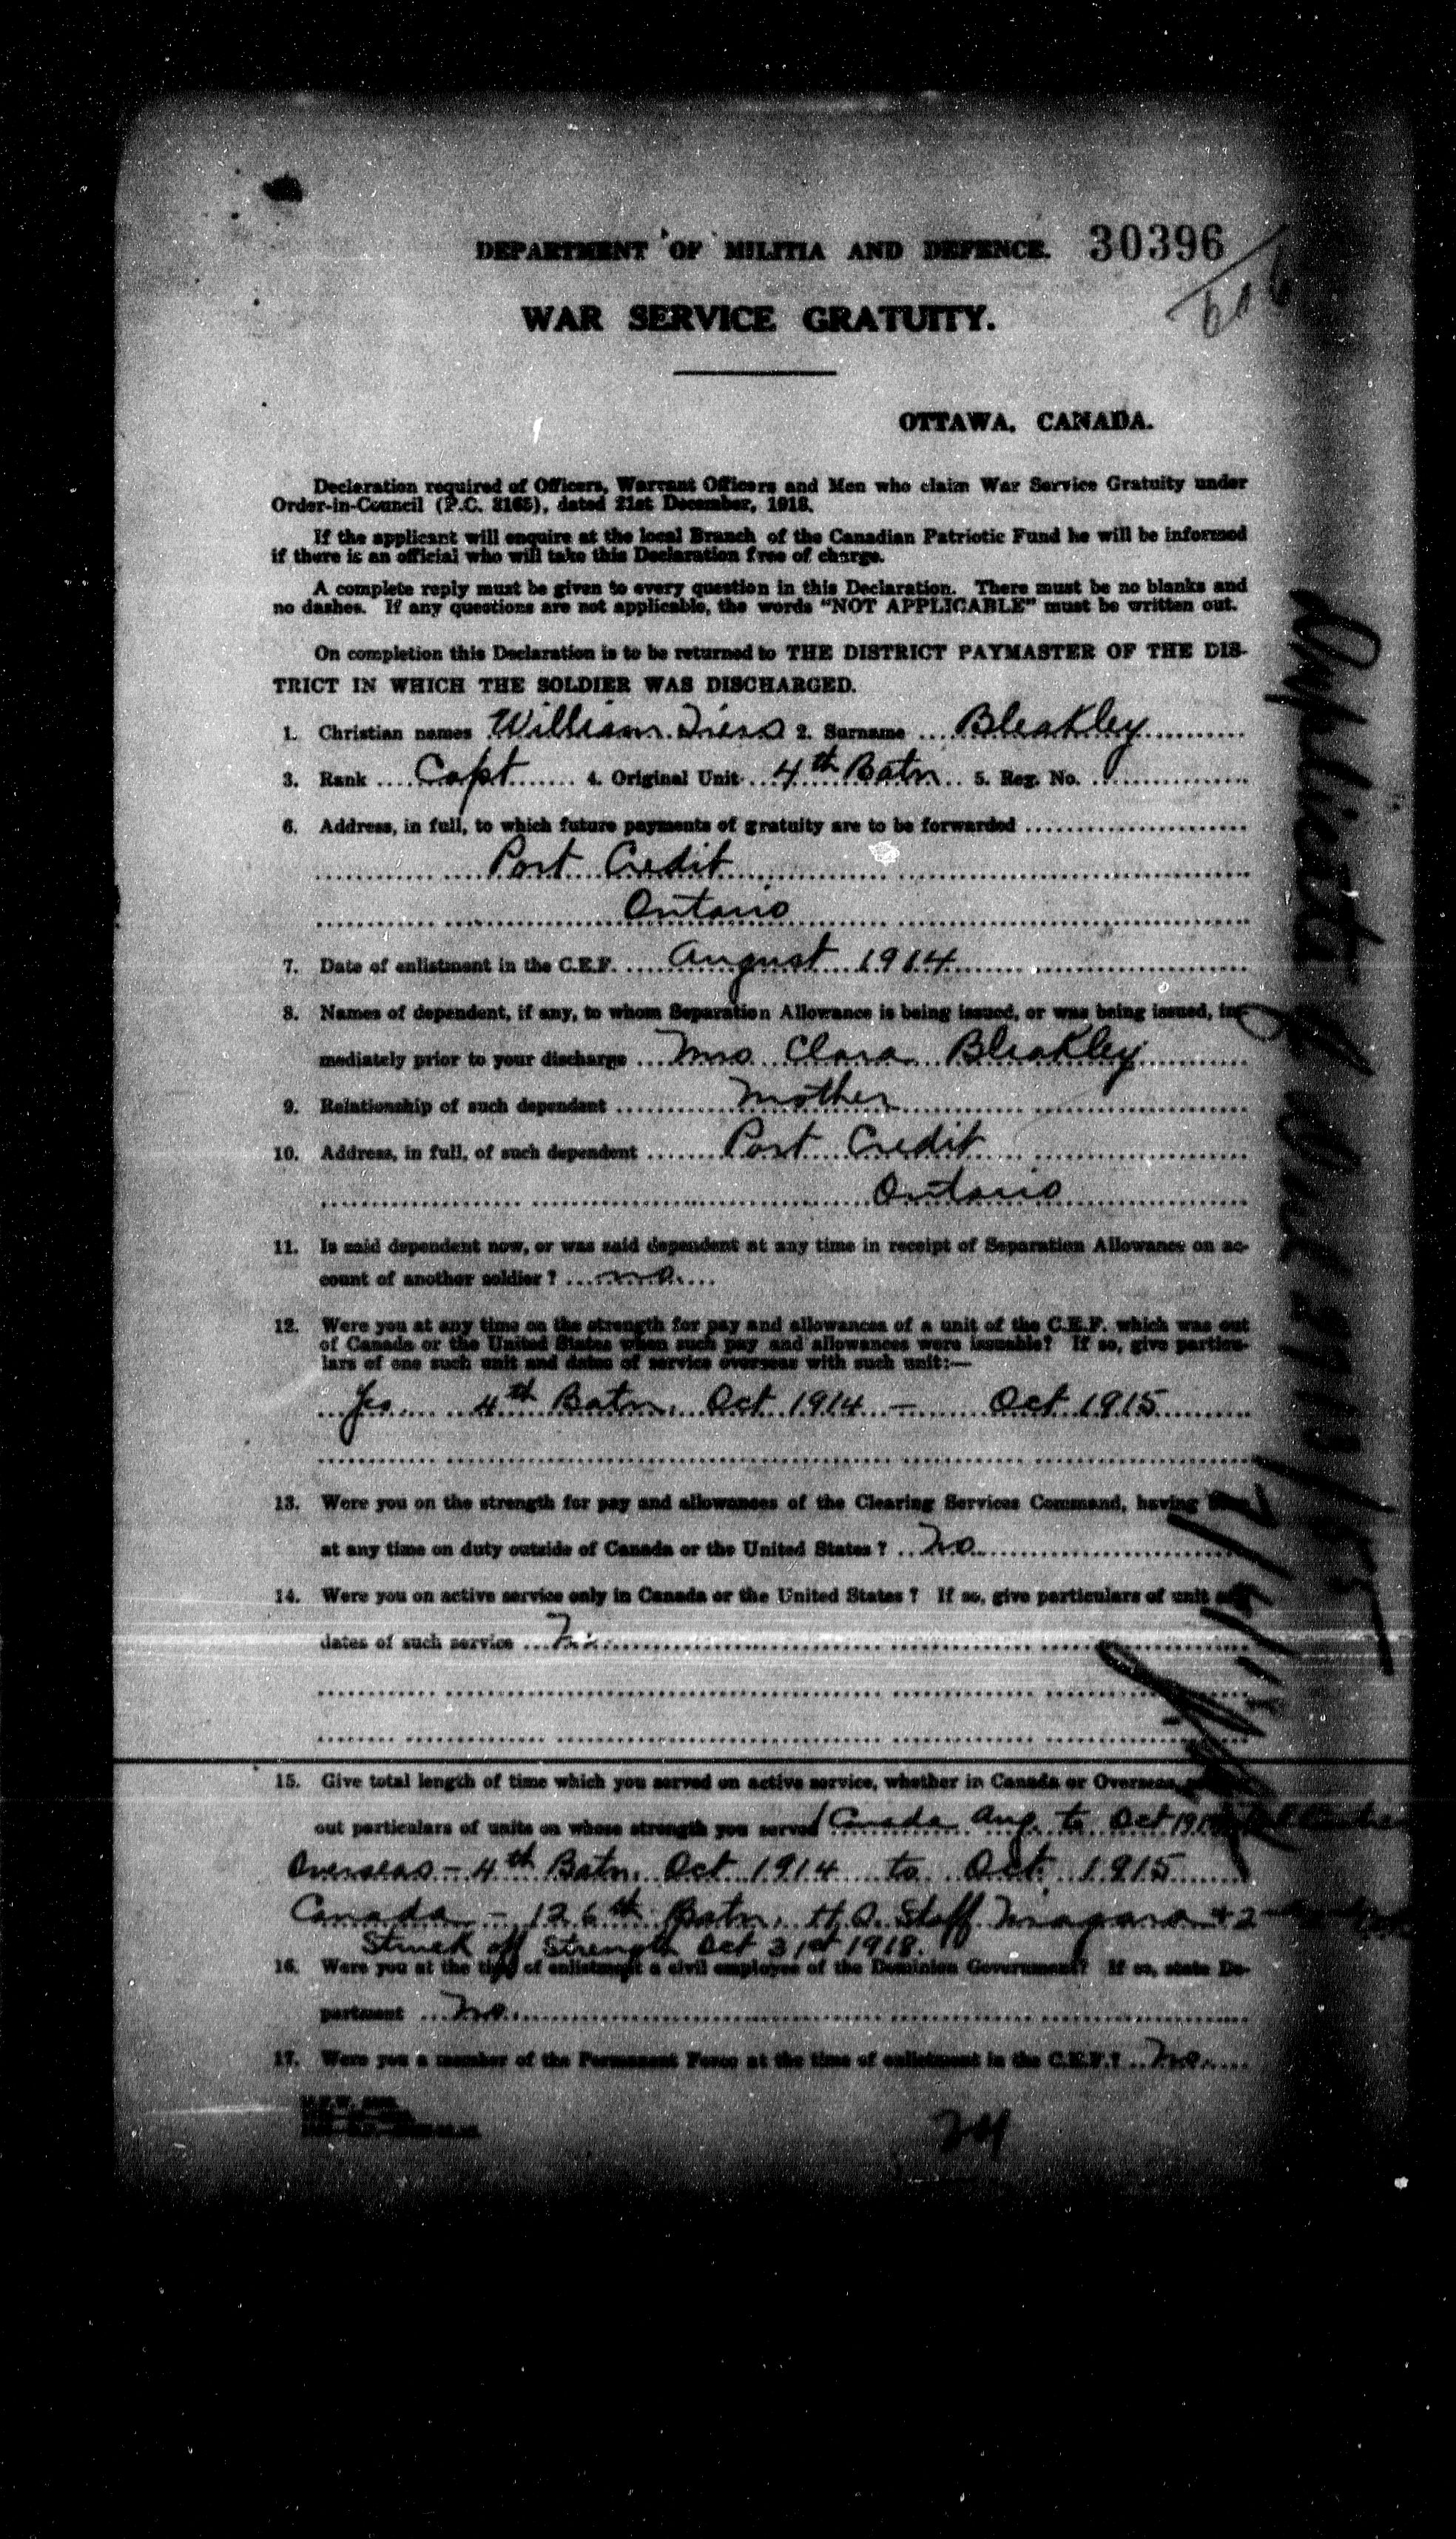 DEPARTMENT OF MILITIA AND DEFENCE. 30396
WAR SERVICE GRATUITY.
OTTAWA, CANADA.
Declaration required of Officers, Warrant Officers and Men who claim War Service Gratuity under
Order-in-Council (P.C. 3165), dated 21st December, 1918.
If the applicant will enquire at the local Branch of the Canadian Patriotic Fund he will be informed
if there is an official who will take this Declaration free of charge.
A complete reply must be given to every question in this Declaration. There must be no blanks and
no dashes. If any questions are not applicable, the words "NOT APPLICABLE" must be written out.
On completion this Declaration is to be returned to THE DISTRICT PAYMASTER OF THE DIS-
TRICT IN WHICH THE SOLDIER WAS DISCHARGED.
1. Christian names William 2. Surname Bleakley
3. Rank Capt 4. Original Unit 4th Batn 5. Reg. No.
6. Address, in full, to which future payments of gratuity are to be forwarded
Port Credit
Ontario
7. Date of enlistment in the C.E.F. August 1914
8. Names of dependent, if any, to whom Separation Allowance is being issued, or was being issued, im-
mediately prior to your discharge Mrs Clara Bleakley
9. Relationship of such dependent Mother
10. Address, in full, of such dependent Port Credit
Ontario
11. Is said dependent now, or was said dependent at any time in receipt of Separation Allowance on ac-
count of another soldier? no.
12. Were you at any time on the strength for pay and allowances of a unit of the C.E.F. which was out
of Canada or the United States when such pay and allowances were issuable? If so, give particu-
lars of one such unit and dates of service overseas with such unit:—
Yes. 4th Batn. Oct 1914 - Oct 1915
13. Were you on the strength for pay and allowances of the Clearing Services Command, having
at any time on duty outside of Canada or the United States? No.
14. Were you on active service only in Canada or the United States? If so, give particulars of unit
dates of such service No.
15. Give total length of time which you served on active service, whether in Canada or Overseas,
out particulars of units on whose strength you served Canada Aug. to Oct 191
Overseas - 4th Batn. Oct 1914 to Oct. 1915
Canada - 126th Batn. H.Q. Staff Niagara + 2
Struck off Strength Oct 31st 1918.
16. Were you at the time of enlistment a civil employee of the Dominion Government? If so, state De-
partment No.
17. Were you a member of the Permanent Force at the time of enlistment in the C.E.F.? No.
24
Duplicate of